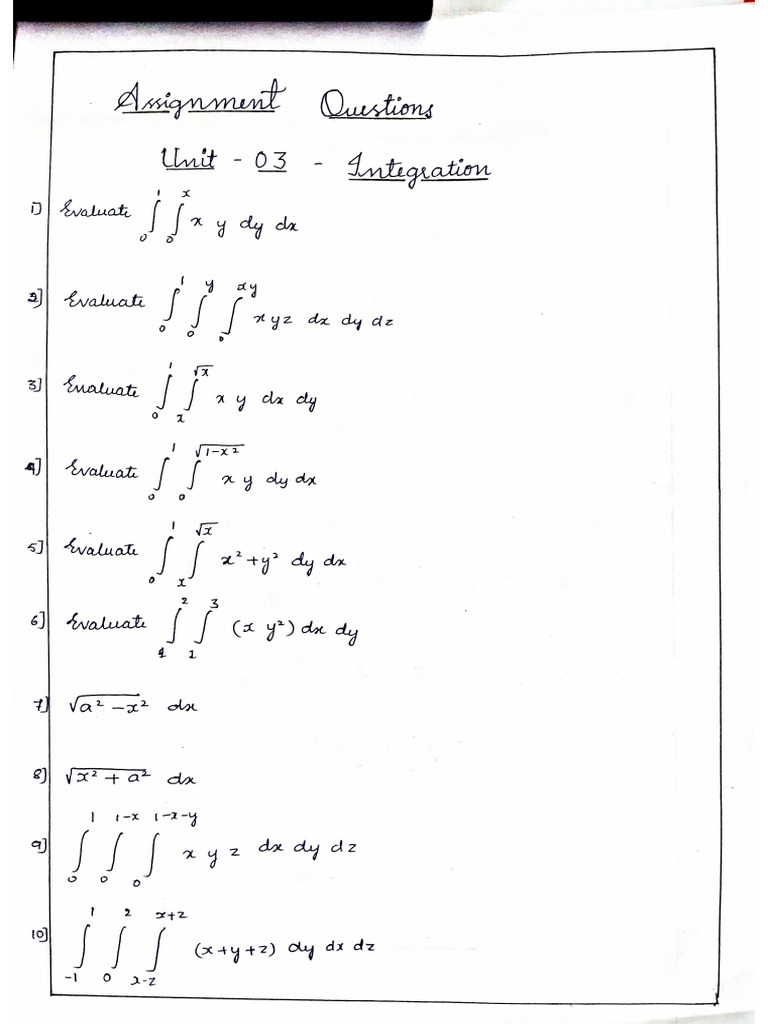 Assignment Questions
Unit - 03 - Integration
1) Evaluate ∫₀¹ ∫₀ˣ x y dy dx
2] Evaluate ∫₀¹ ∫₀^y ∫₀^xy xyz dx dy dz
3] Enaluate ∫₀¹ ∫ₓ^√x x y dx dy
4] Evaluate ∫₀¹ ∫₀^√(1-x²) x y dy dx
5] Evaluate ∫₀¹ ∫ₓ^√x x² + y² dy dx
6] Evaluate ∫₁² ∫₁³ (x y²) dx dy
7] √(a² - x²) dx
8] √(x² + a²) dx
9] ∫₀¹ ∫₀^1-x ∫₀^1-x-y x y z dx dy dz
10] ∫₋₁¹ ∫₀² ∫_x-z^x+z (x+y+z) dy dx dz